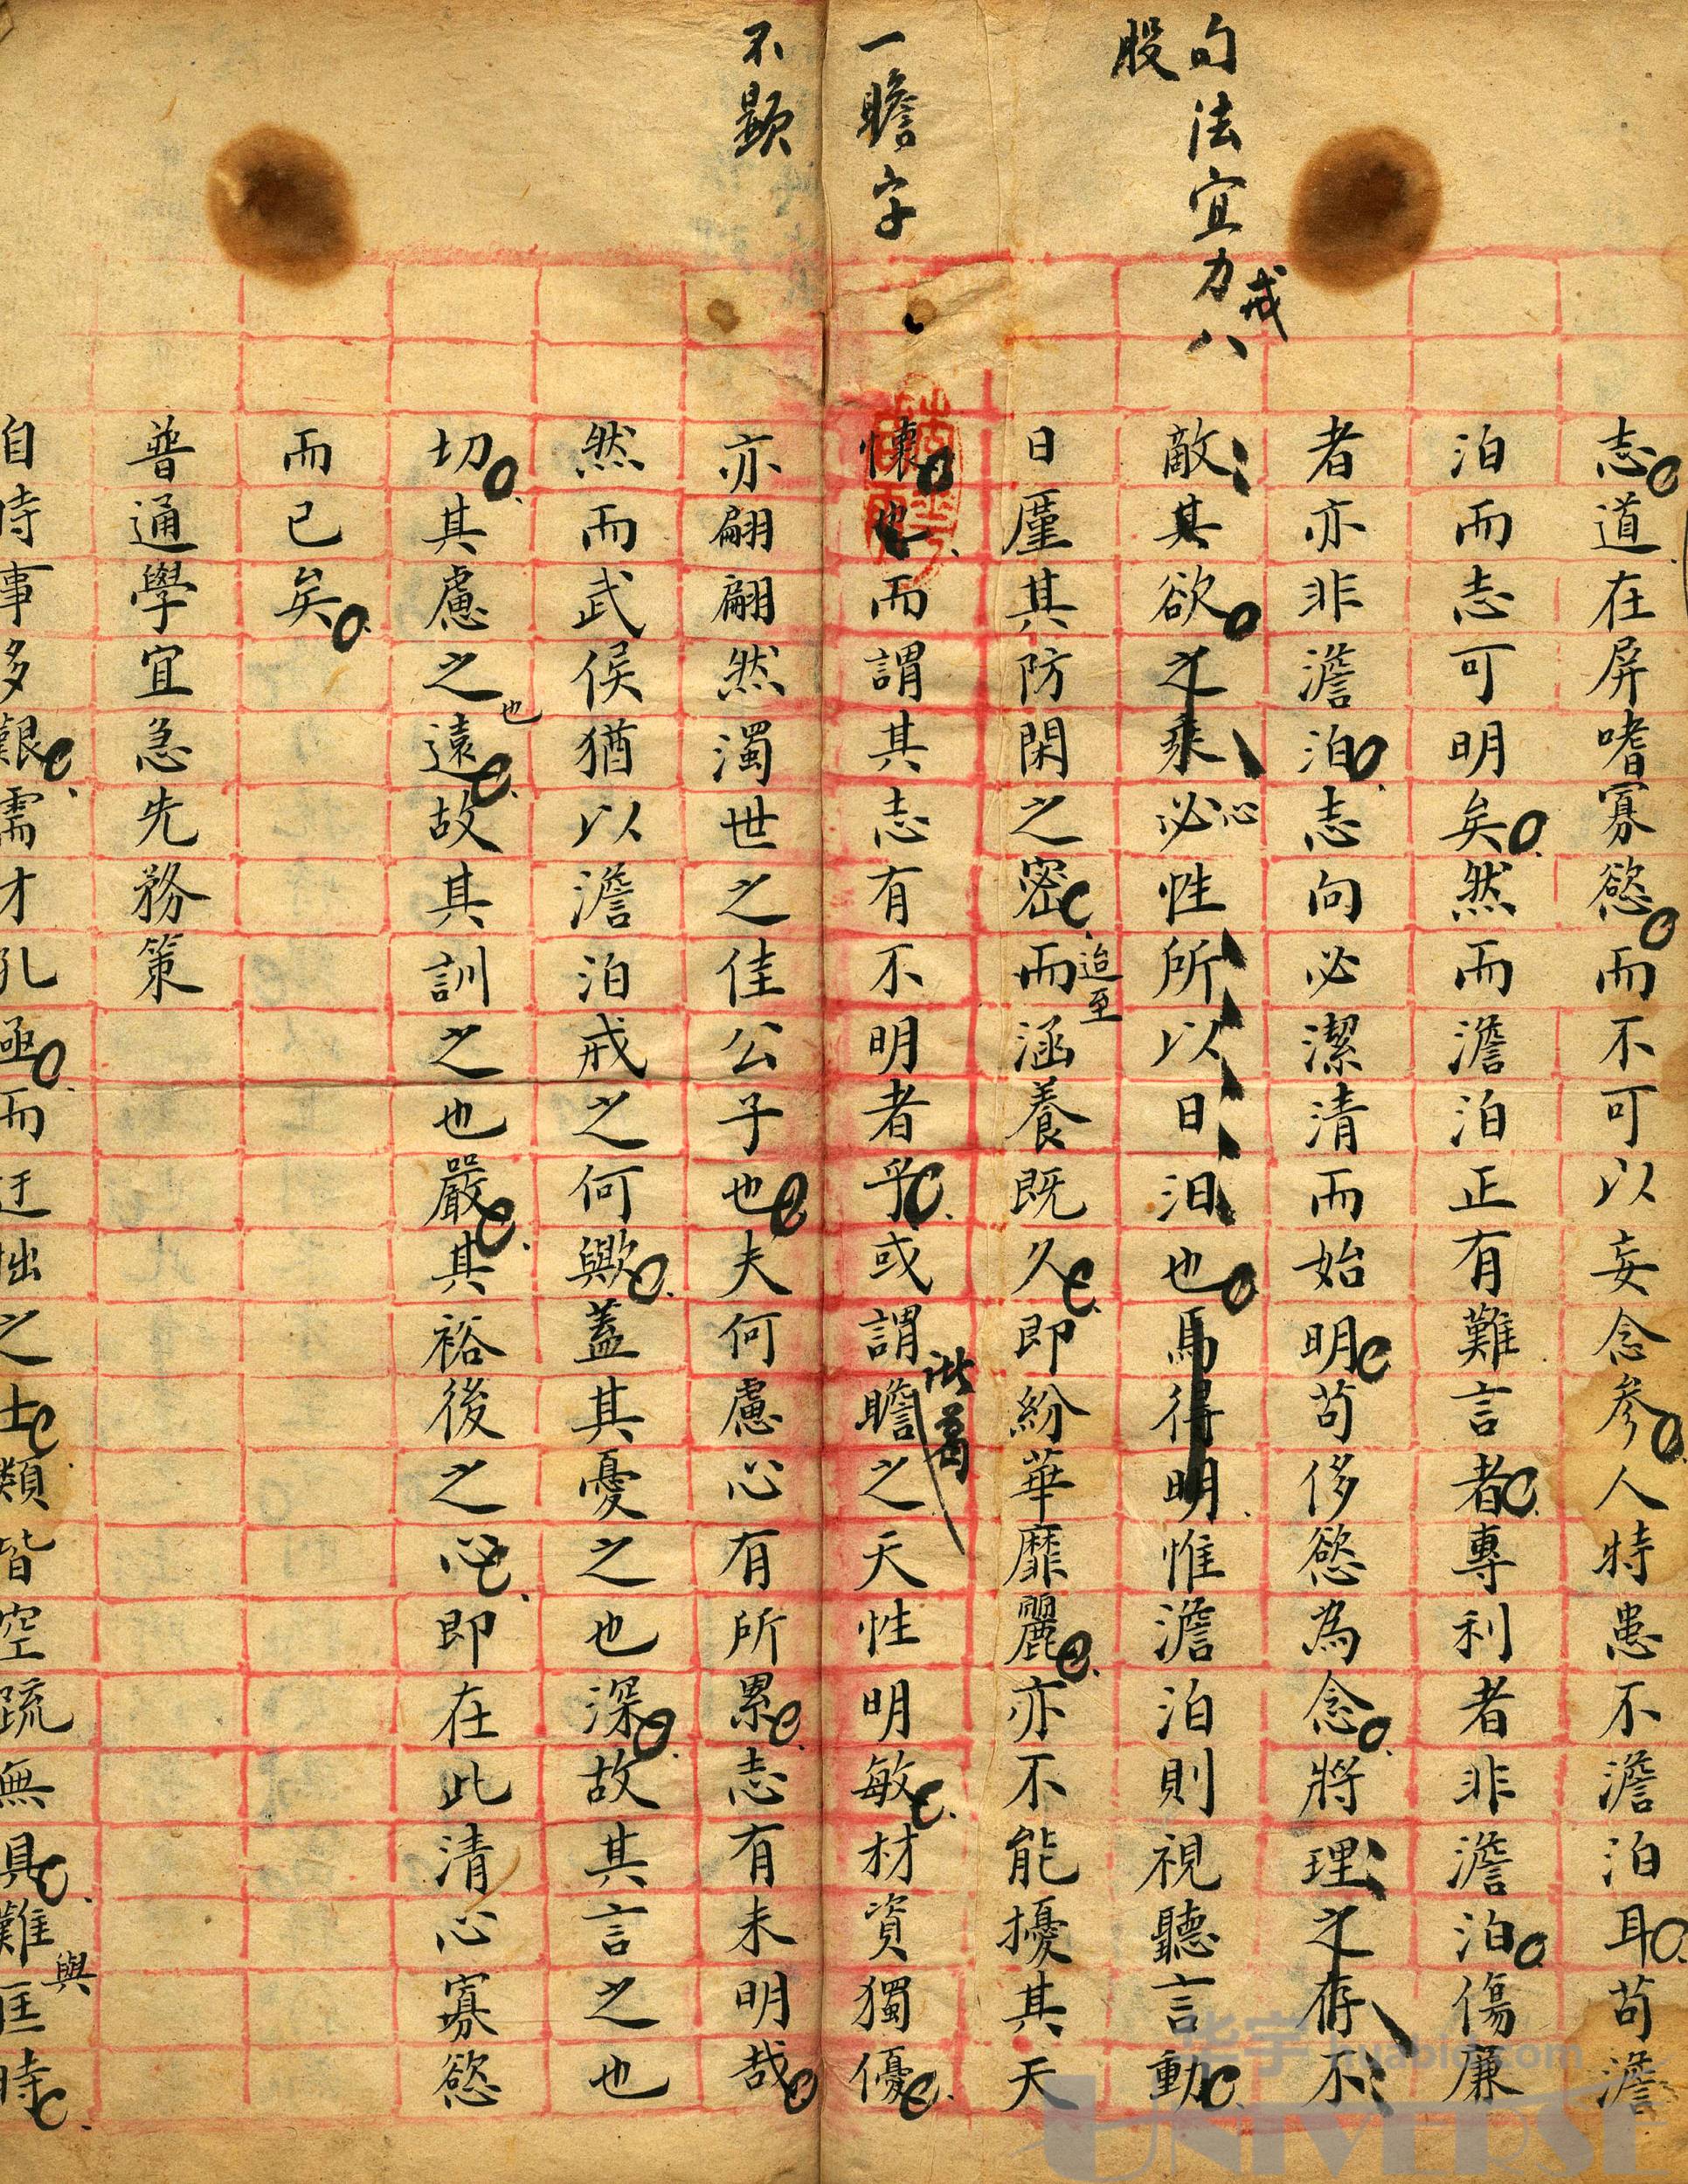 句法宜力戒八
股
一瞻字
不顯
志道在屏嗜寡慾而不可以妄念參人特患不澹泊耳苟澹
泊而志可明矣然而澹泊正有難言者專利者非澹泊傷廉
者亦非澹泊志向必潔清而始明苟侈慾為念將理之存不
敵其欲之乘必心性所以日汨也焉得明惟澹泊則視聽言動
日厪其防閑之密而迨至涵養既久即紛華靡麗亦不能擾其天
懷也而謂其志有不明者乎或謂瞻之天性明敏材資獨優
諸葛
亦翩翩然濁世之佳公子也夫何慮心有所累志有未明哉
然而武侯猶以澹泊戒之何歟蓋其憂之也深故其言之也
切其慮之也遠故其訓之也嚴其裕後之心即在此清心寡慾
而已矣
普通學宜急先務策
自時事多艱需才孔亟而迂拙之士類皆空疏無具難與匡時
华宇 huabid.com
UNIVERSE